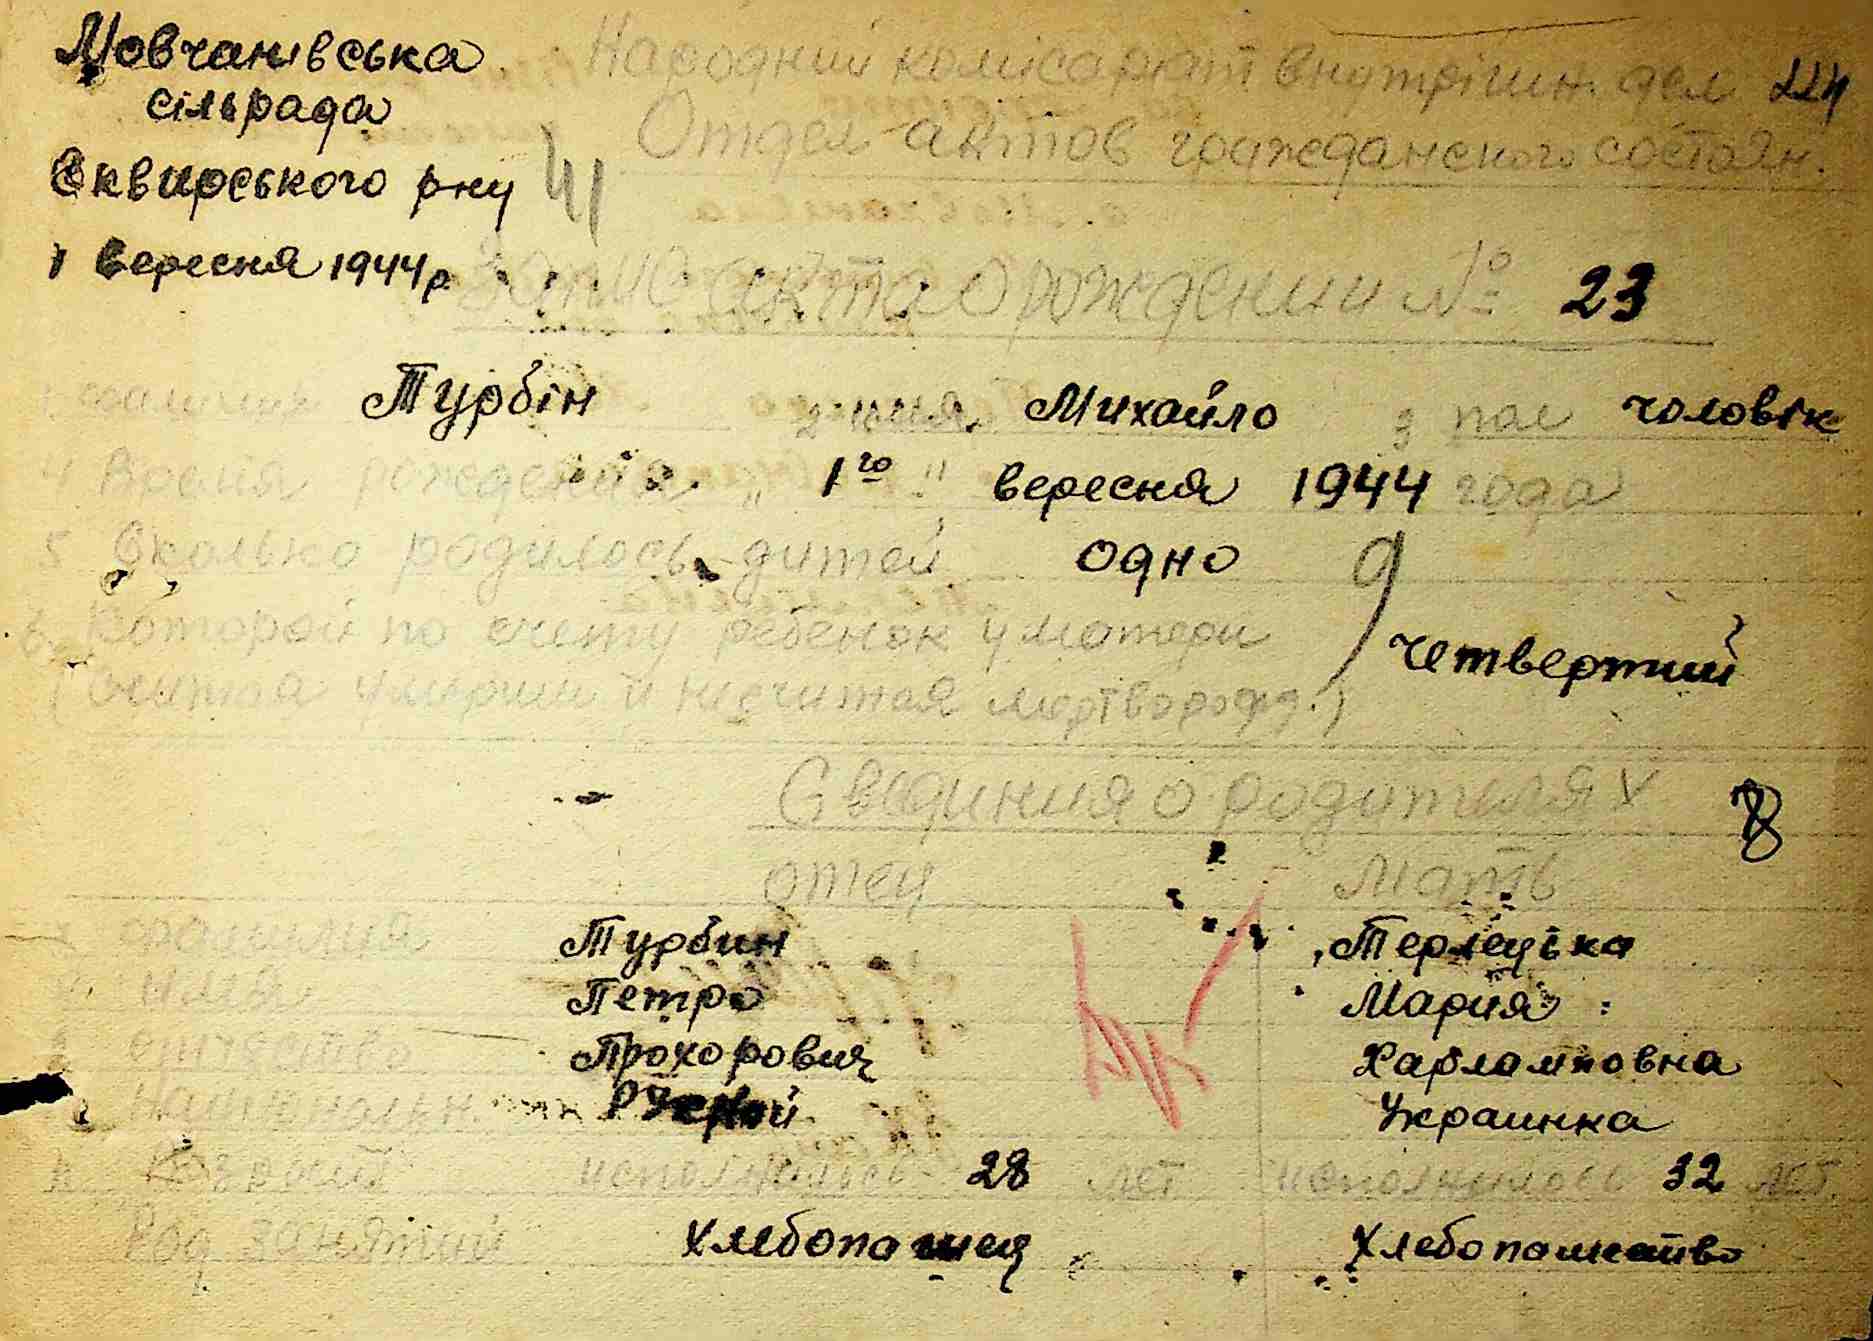 Мовчанівська
сільрада
Сквирського рну
1 вересня 1944р.
41
Народний комісаріат внутрішн. дел 224
Отдел актов гражданского состоян.
Запис акта о рождении № 23
1. фамилия Турбін 2 имя Михайло 3 пол чоловік
4 Время рождения „ 1го " вересня 1944 года
5 Сколько родилось дитей одно 9
6. Которой по счету ребенок у матери четвертий
(Считая умерших и несчитая мертворожд.)
Свединия о родителях 8
отец мать
фамилия Турбин Терлецька
имя Петро Мария
отчество Прохорович Харламповна
Национальн Украинка
Возраст исполнилось 28 лет исполнилось 32 лет.
Род занятий Хлебопашец Хлебопашество